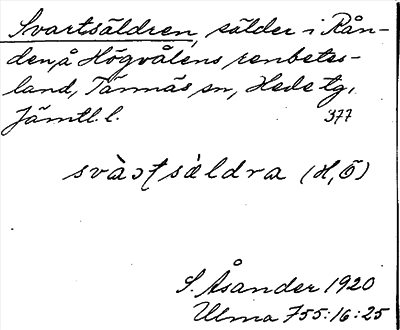 Svartsäldren, sälder i Rån-
den, å Högvålens renbetes-
land, Tännäs sn, Hede tg,
Jämtl. l. 377
svàɔʈsàldra (H, Ö)
S. Åsander 1920
Ulma 755:16:25